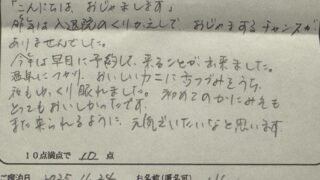 「こんにちは、おじゃまします」
昨年は入退院のくりかえしで おじゃまするチャンスが
ありませんでした。
今年は早目に予約して、来ることが出来ました。
温泉につかり、おいしいカニにもうつづみをうち、
夜もゆっくり眠れました。初めてのかにみそも
とってもおいしかったです。
また来られるように、元気でいたいなと思います。
10点満点で 10 点
ご宿泊日 2025.11.24 お名前(匿名可)